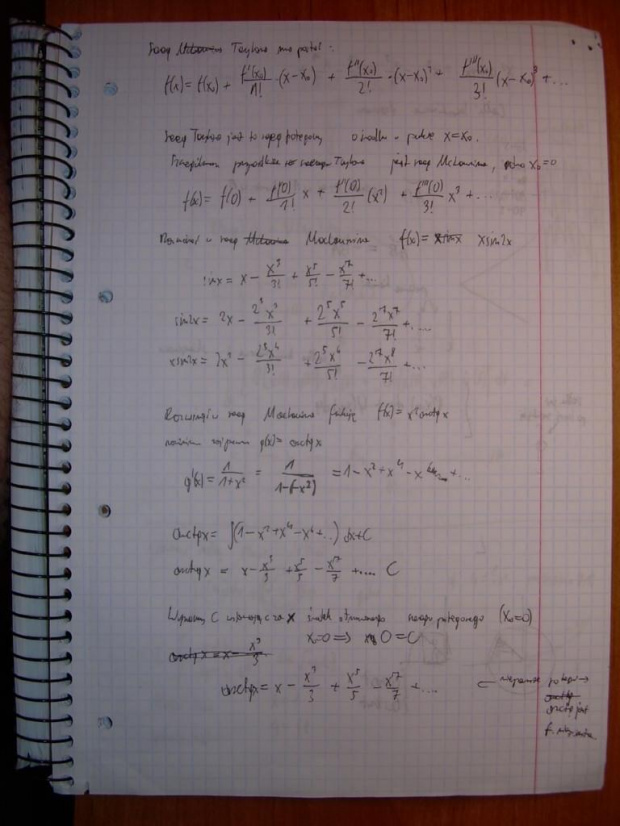 Szereg Taylora ma postać:
f(x) = f(x₀) + f'(x₀)/1! · (x-x₀) + f''(x₀)/2! · (x-x₀)² + f'''(x₀)/3! (x-x₀)³ + ...
Szereg Taylora jest to szereg potęgowy o środku w punkcie x = x₀.
Szczególnym przypadkiem szeregu Taylora jest szereg Mclaurina, x₀ = 0
f(x) = f(0) + f'(0)/1! x + f''(0)/2! (x²) + f'''(0)/3! x³ + ...
Rozwinąć w szereg Maclaurina f(x) = x sin2x
sinx = x - x³/3! + x⁵/5! - x⁷/7! + ...
sin2x = 2x - 2³x³/3! + 2⁵x⁵/5! - 2⁷x⁷/7! + ....
x sin2x = 2x² - 2³x⁴/3! + 2⁵x⁶/5! - 2⁷x⁸/7! + ...
Rozwinąć w szereg Maclaurina funkcję f(x) = x² arctg x
g(x) = arctg x
g'(x) = 1/(1+x²) = 1/(1-(-x²)) = 1 - x² + x⁴ - x⁶ + ...
arctg x = ∫(1 - x² + x⁴ - x⁶ + ...) dx + C
arctg x = x - x³/3 + x⁵/5 - x⁷/7 + .... C
C x środek szeregu potęgowego (x₀ = 0)
x = 0 ⟹ 0 = C
arctg x = x - x³/3
arctg x = x - x³/3 + x⁵/5 - x⁷/7 + ...
nieparzyste potęgi →
arctg jest
f. nieparzysta